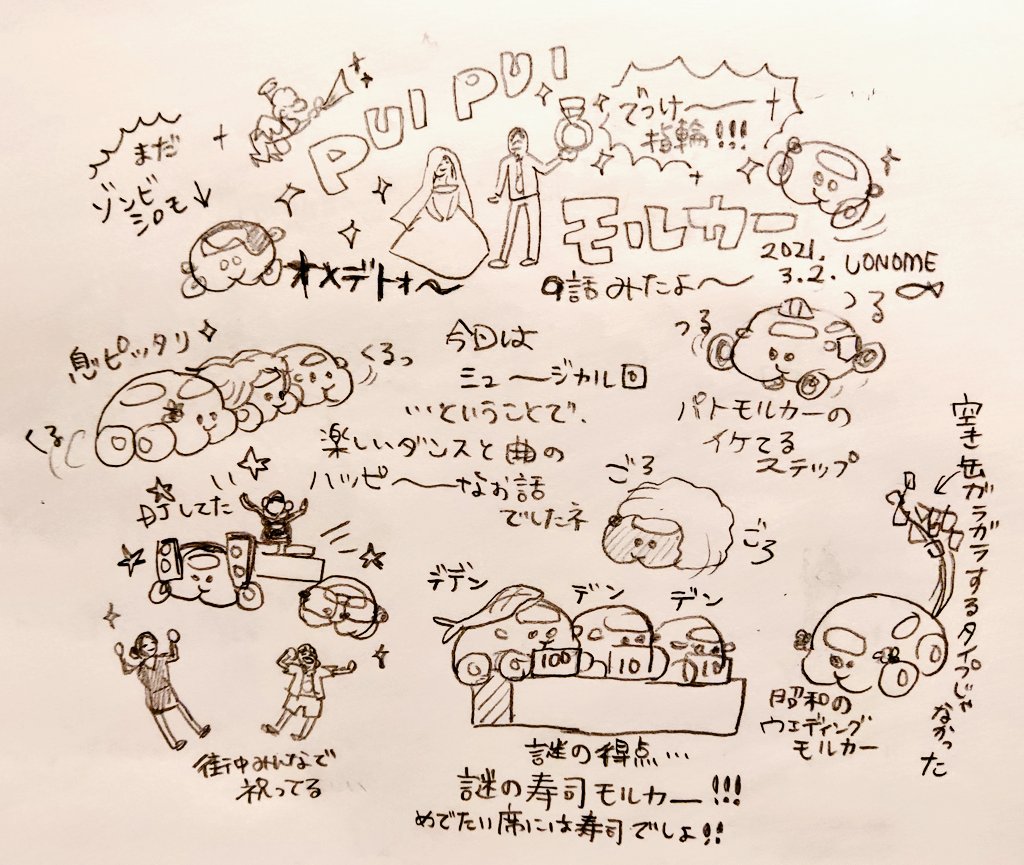 PUI PUI
モルカー
でっけ〜〜
指輪!!!
まだ
ゾンビ
シロモ↓
オメデトォ〜
2021.
3.2. UONOME
9話みたよ〜
息ピッタリ
くるっ
くる
今日は
ミュ〜ジカル回
…ということで、
楽しいダンスと曲の
ハッピ〜なお話
でしたネ
つる
つる
パトモルカーの
イケてる
ステップ
い
DJしてた
ごろ
ごろ
空き缶ガラガラするタイプじゃ
なかった
デデン
デン
デン
100
10
10
街中みんなで
祝ってる
謎の得点…
謎の寿司モルカー!!!
めでたい席には寿司でしょ!!
昭和の
ウエディング
モルカー